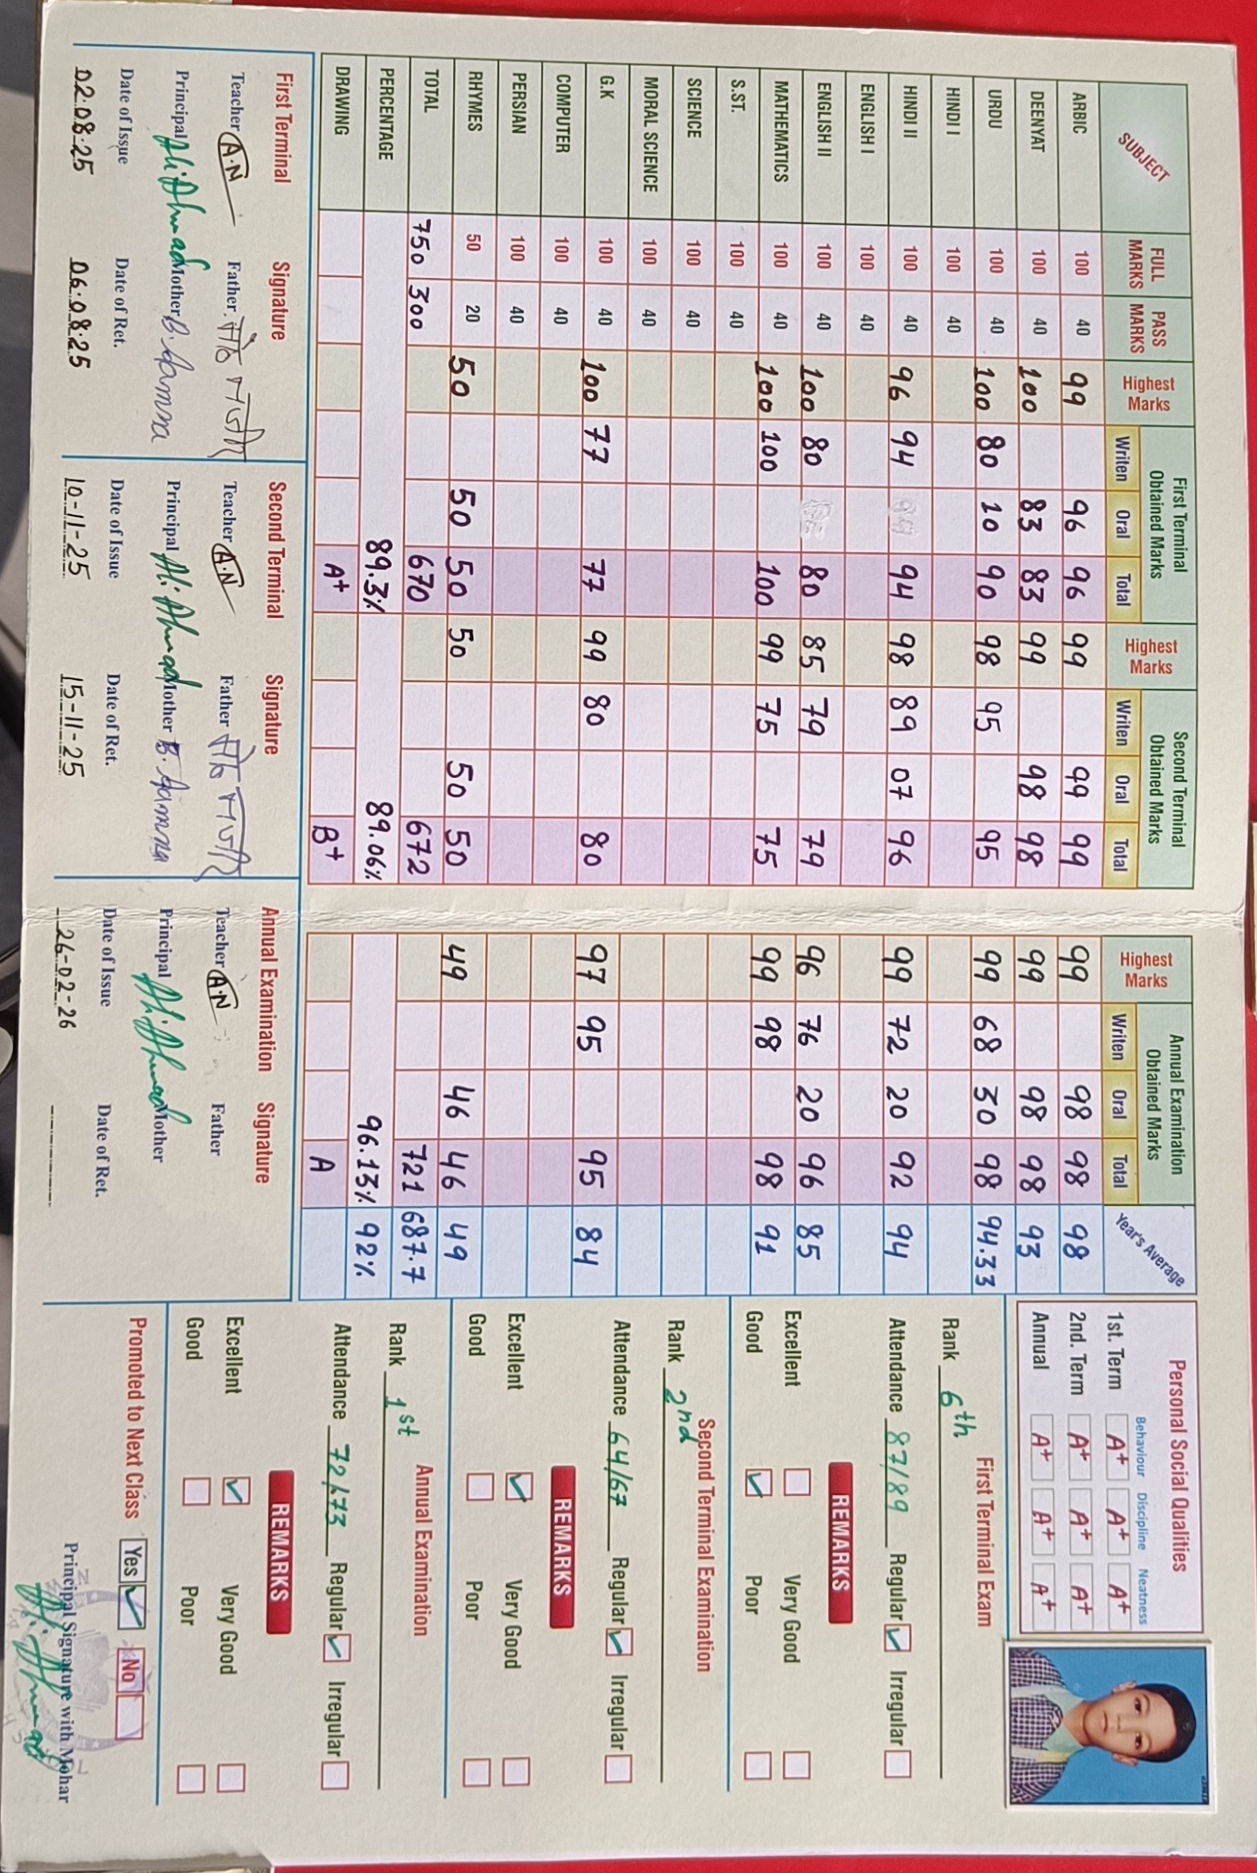 SUBJECT FULL MARKS PASS MARKS Highest Marks First Terminal Obtained Marks Writen Oral Total Highest Marks Second Terminal Obtained Marks Writen Oral Total Highest Marks Annual Examination Obtained Marks Writen Oral Total Year's Average
ARBIC 100 40 99 96 96 99 99 99 99 98 98 98
DEENYAT 100 40 100 83 83 99 98 98 99 98 98 93
URDU 100 40 100 80 10 90 98 95 95 99 68 30 98 94.33
HINDI I 100 40
HINDI II 100 40 96 94 94 98 89 07 96 99 72 20 92 94
ENGLISH I 100 40
ENGLISH II 100 40 100 80 80 85 79 79 96 76 20 96 85
MATHEMATICS 100 40 100 100 100 99 75 75 99 98 98 91
S.ST. 100 40
SCIENCE 100 40
MORAL SCIENCE 100 40
G.K 100 40 100 77 77 99 80 80 97 95 95 84
COMPUTER 100 40
PERSIAN 100 40
RHYMES 50 20 50 50 50 50 50 50 49 46 46 49
TOTAL 750 300 670 672 721 687.7
PERCENTAGE 89.3% 89.06% 96.13% 92%
DRAWING A+ B+ A
First Terminal Signature
Teacher A.N Father
Principal Ali Ahmad Mother B. Aamna
Date of Issue Date of Ret.
02:08:25 06:08:25
Second Terminal Signature
Teacher A.N Father
Principal Ali Ahmad Mother B. Aamna
Date of Issue Date of Ret.
10-11-25 15-11-25
Annual Examination Signature
Teacher A.N Father
Principal Ali Ahmad Mother
Date of Issue Date of Ret.
26-02-26
Personal Social Qualities
Behaviour Discipline Neatness
1st. Term A+ A+ A+
2nd. Term A+ A+ A+
Annual A+ A+ A+
First Terminal Exam
Rank 6th
Attendance 87/89 Regular Irregular
REMARKS
Excellent Very Good
Good Poor
Second Terminal Examination
Rank 2nd
Attendance 64/67 Regular Irregular
REMARKS
Excellent Very Good
Good Poor
Annual Examination
Rank 1st
Attendance 72/73 Regular Irregular
REMARKS
Excellent Very Good
Good Poor
Promoted to Next Class Yes No
Principal Signature with Mohar
Ali Ahmad